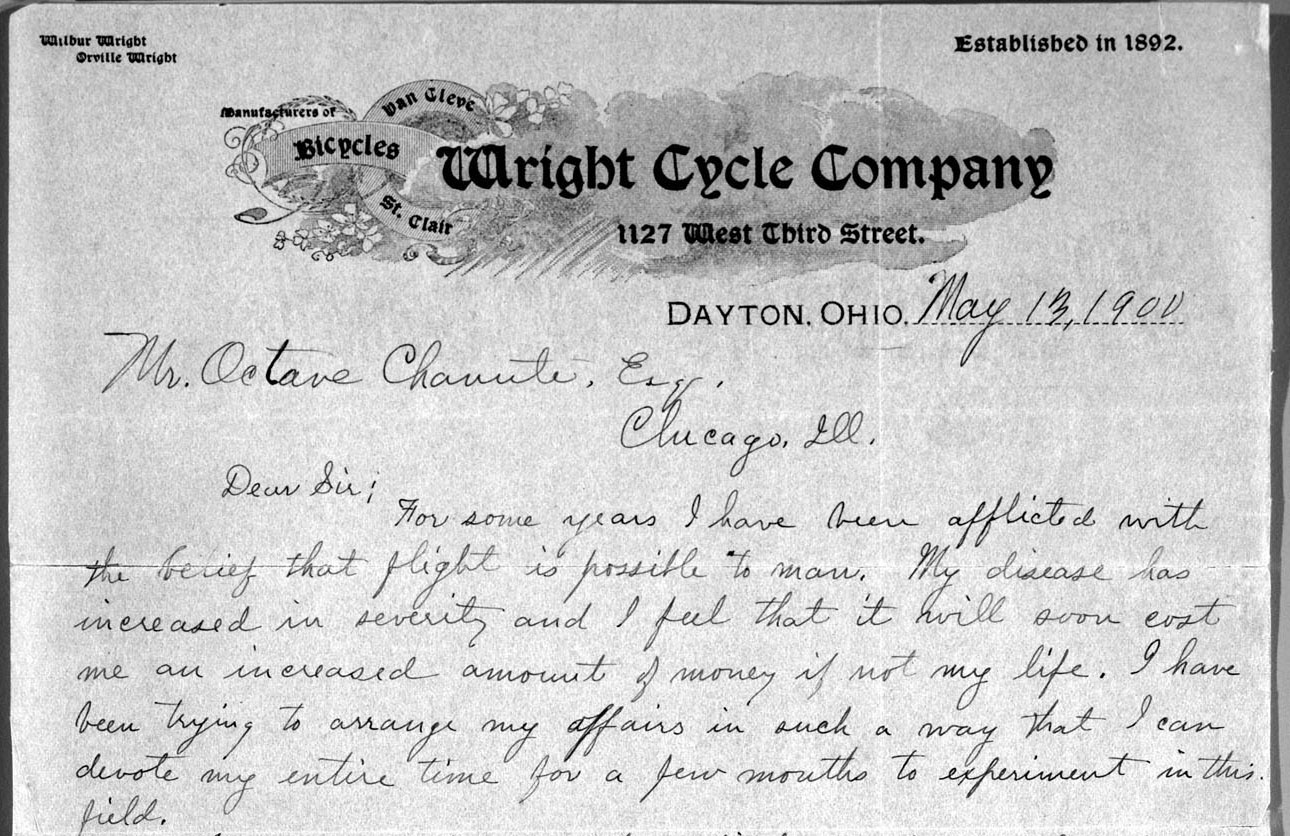 Wilbur Wright
Orville Wright
Established in 1892.
Manufacturers of
Van Cleve
Bicycles
St. Clair
Wright Cycle Company
1127 West Third Street.
DAYTON, OHIO, May 13, 1900
Mr. Octave Chanute, Esq.
Chicago, Ill.
Dear Sir;
For some years I have been afflicted with
the belief that flight is possible to man. My disease has
increased in severity and I feel that it will soon cost
me an increased amount of money if not my life. I have
been trying to arrange my affairs in such a way that I can
devote my entire time for a few months to experiment in this
field.